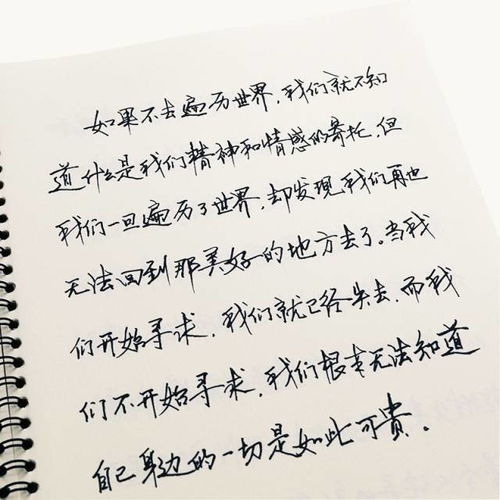 如果不去遍历世界,我们就不知
道什么是我们精神和情感的寄托,但
我们一旦遍历了世界,却发现我们再也
无法回到那美好的地方去了。当我
们开始寻求,我们就已经失去,而我
们不开始寻求,我们根本无法知道
自己身边的一切是如此可贵。